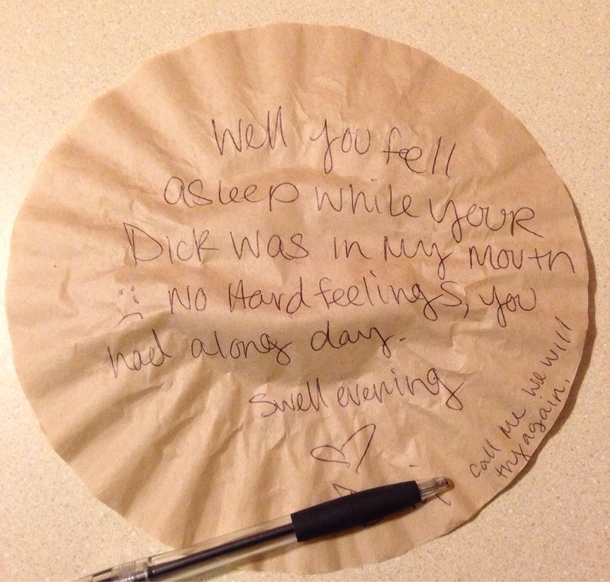 Well you fell
asleep while your
Dick was in my mouth
No Hard feelings, you
had along day.
Swell evening
call me we will
try again.